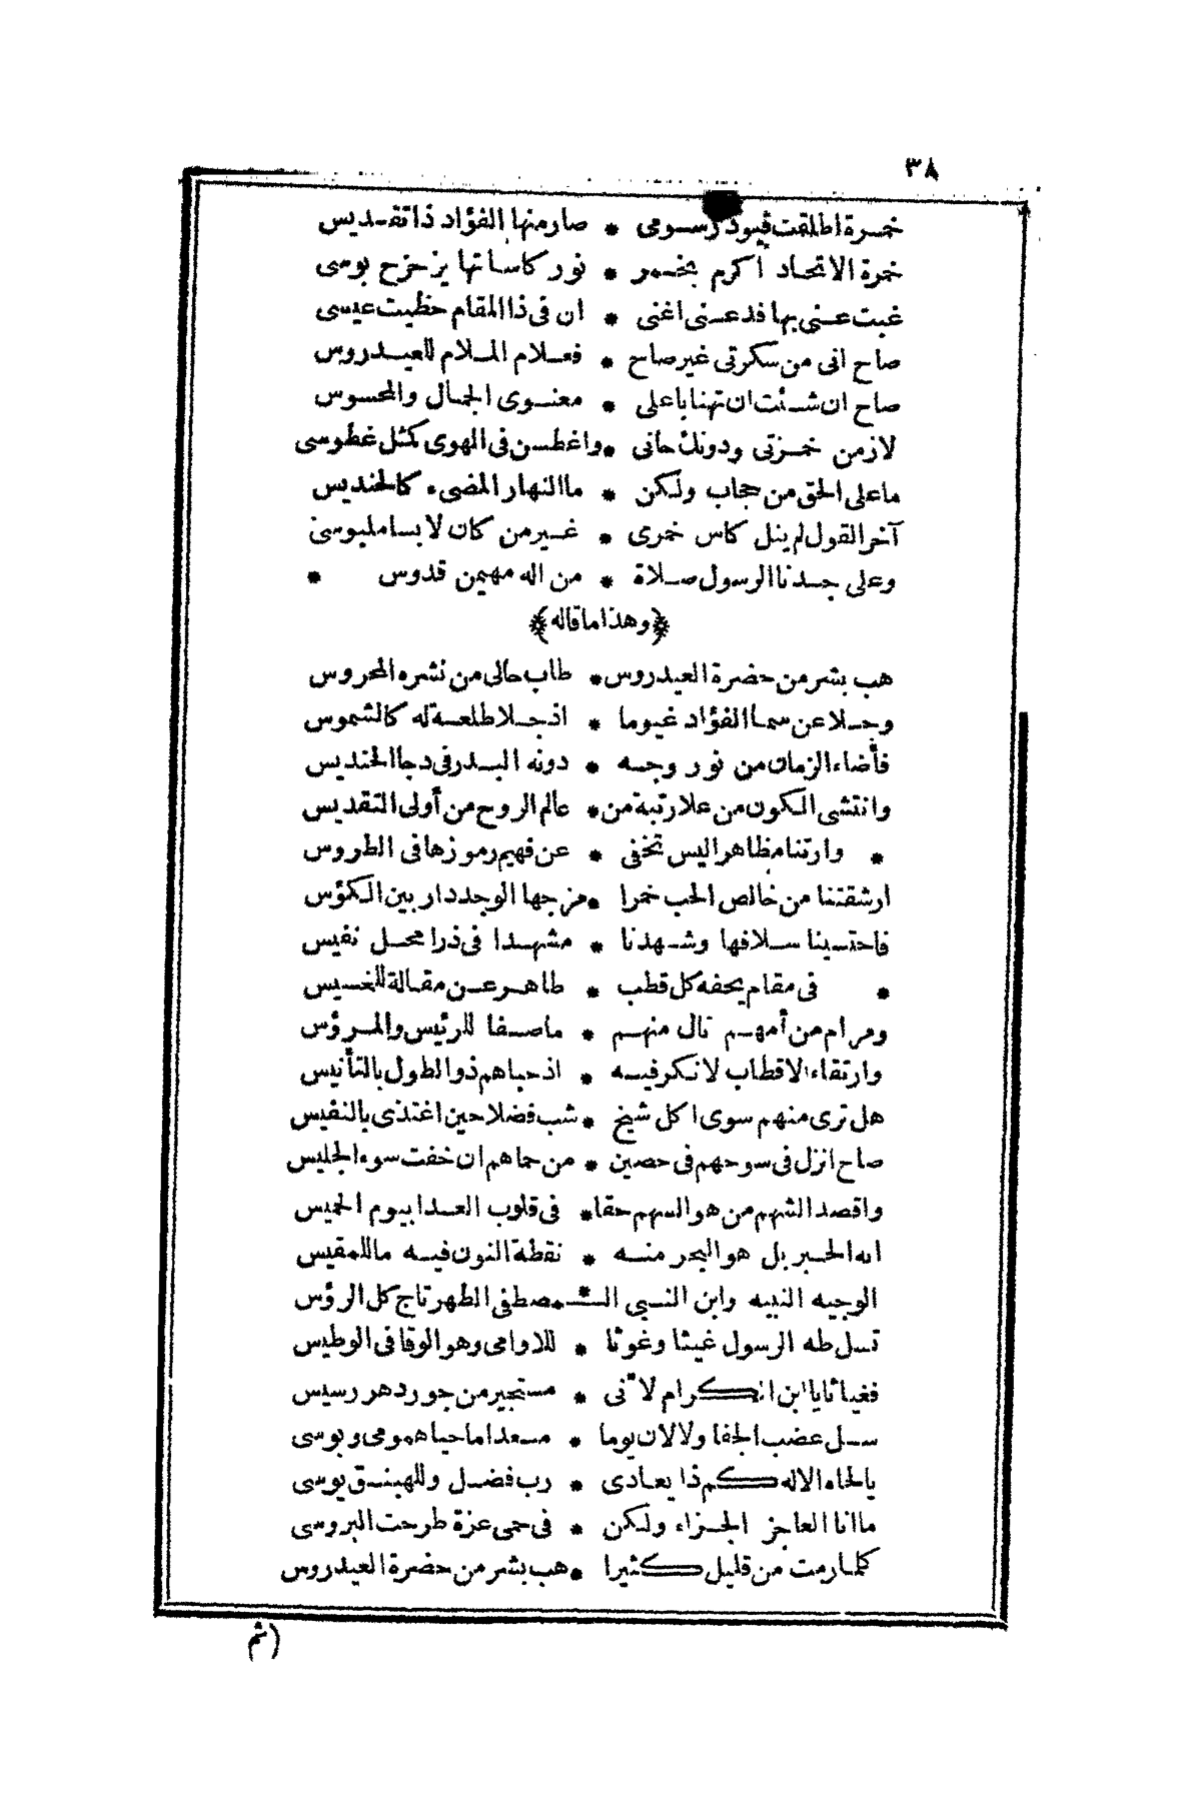 ٣٨
خمرة اطلقت قيود رسومى * صار منها الفؤاد ذا تقديس
خمرة الاتحاد أكرم بخمر * نور كاساتها يزحزح بوسى
غبت عنى بها فدعنى اغنى * ان فى ذا المقام حظيت عيسى
صاح انى من سكرتى غير صاح * فعلام الملام للعيدروس
صاح ان شئت ان تهنا با على * معنوى الجمال والمحسوس
لازمن خمرتى ودونك حانى * واغطسن فى الهوى كمثل غطوسى
ما على الحق من حجاب ولكن * ما النهار المضىء كالحنديس
آخر القول لم ينل كاس خمرى * غير من كان لابسا ملبوسى
وعلى جدنا الرسول صلاة * من اله مهيمن قدوس *
﴿وهذا ما قاله﴾
هب بشر من حضرة العيدروس * طاب حالى من نشره المحروس
وجلا عن سما الفؤاد غيوما * اذ جلا طلعة له كالشموس
فأضاء الزمان من نور وجه * دونه البدر فى دجا الحنديس
وانتشى الكون من علا رتبة من * عالم الروح من أولى التقديس
* وارتنا مظاهرا ليس تخفى * عن فهيم رموزها فى الطروس
ارشقتنا من خالص الحب خمرا * مزجها الوجد دار بين الكؤس
فاحتسينا سلافها وشهدنا * مشهدا فى ذرا محل نفيس
* فى مقام يحفه كل قطب * طاهر عن مقالة للخسيس
ومرام من أمهم نال منهم * ما صفا للرئيس والمرؤس
وارتقاء الاقطاب لا نكر فيه * اذ حباهم ذو الطول بالتأنيس
هل ترى منهم سوى اكل شيخ * شب فضلا حين اغتذى بالنفيس
صاح انزل فى سوحهم فى حصين * من حماهم ان خفت سوء الجليس
واقصد الشهم من هو السهم حقا * فى قلوب العدا بيوم الخميس
انه الحبر بل هو البحر منه * نقطة النون فيه ما للمقيس
الوجيه النبيه وابن النبى الـ * ـمصطفى الطهر تاج كل الرؤس
نسل طه الرسول غيثا وغوثا * للاوامى وهو الوقا فى الوطيس
فغياثا يا ابن الكرام لانى * مستجير من جور دهر رسيس
سل عضب الجفا ولا لان يوما * مسعدا ما حيا همومى وبوسى
يا لحاه الاله كم ذا يعادى * رب فضل وللهبنق يوسى
ما انا العاجز الجزاء ولكن * فى حمى عزة طرحت البروسى
كلما رمت من قليل كثيرا * هب بشر من حضرة العيدروس
(ثم